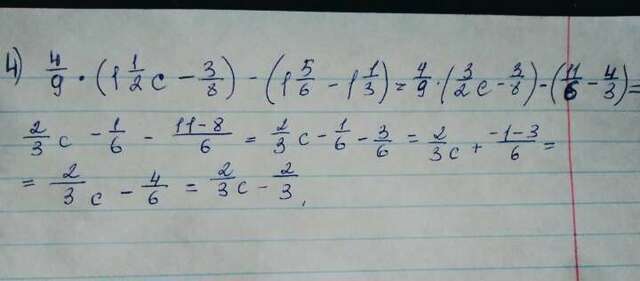 4) 4/9 · (1 1/2 c − 3/8) − (1 5/6 − 1 1/3) = 4/9 · (3/2 c − 3/8) − (11/6 − 4/3) =
2/3 c − 1/6 − (11−8)/6 = 2/3 c − 1/6 − 3/6 = 2/3 c + (−1−3)/6 =
= 2/3 c − 4/6 = 2/3 c − 2/3,